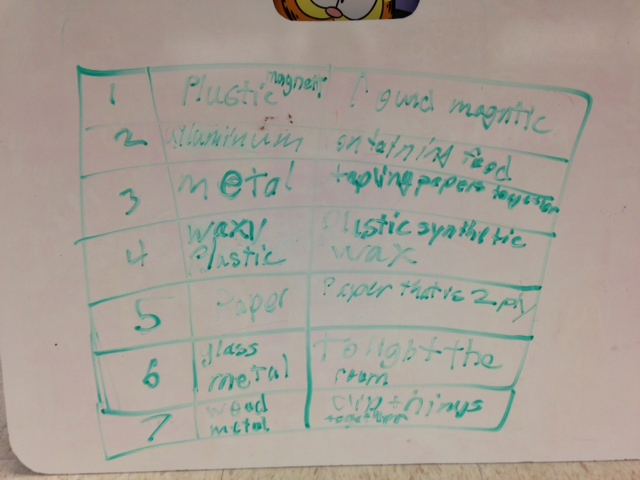 1 Plustic magnetic liquid magnetic
2 Alluminum ontaining food
3 metal papers
4 waxy Plastic plastic synthetic wax
5 Paper Paper that is 2 ply
6 glass metal To light the room
7 wood metal clip things together